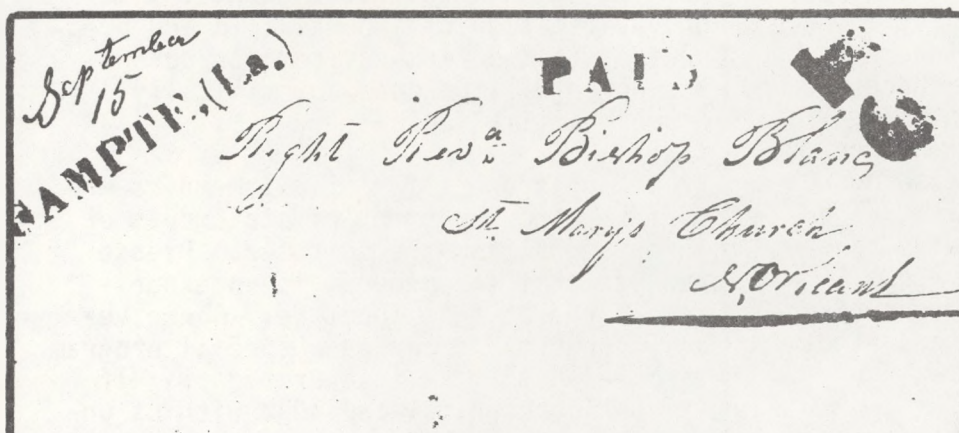 September
15
CAMPTE, (La.)
PAID
10
Right Revd Bishop Blanc
St Marys Church
N, Orleans